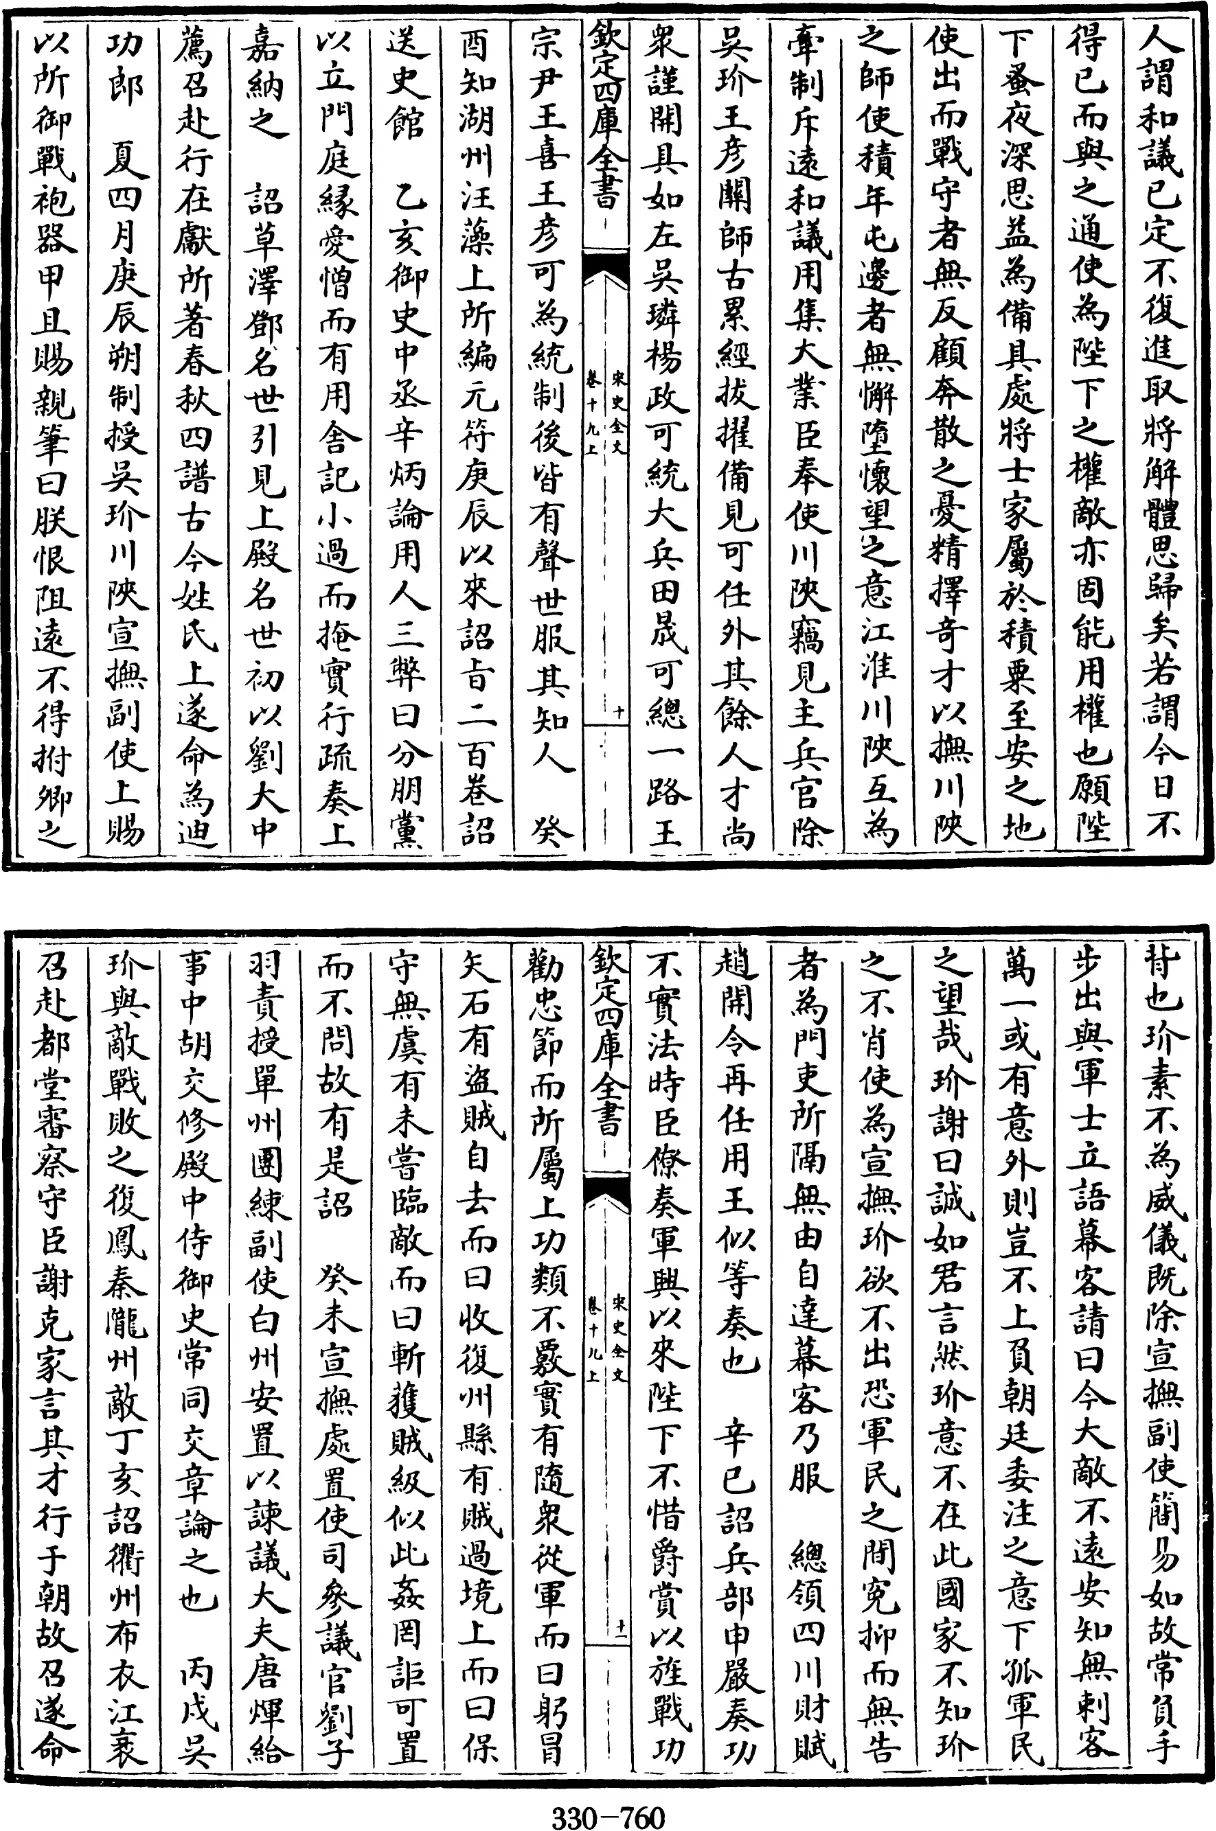 人謂和議已定不復進取將解體思歸矣若謂今日不
得已而與之通使為陛下之權敵亦固能用權也願陛
下蚤夜深思益為備具處將士家屬於積粟至安之地
使出而戰守者無反顧奔散之憂精擇奇才以撫川陜
之師使積年屯邊者無懈墮懷望之意江淮川陜互為
牽制斥遠和議用集大業臣奉使川陜竊見主兵官除
吳玠王彦關師古累經拔擢備見可任外其餘人才尚
衆謹開具如左吳璘楊政可統大兵田晟可總一路王
欽定四庫全書 宋史全文 卷十九上 十
宗尹王喜王彦可為統制後皆有聲世服其知人 癸
酉知湖州汪藻上所編元符庚辰以來詔旨二百巻詔
送史館 乙亥御史中丞辛炳論用人三弊曰分朋黨
以立門庭縁愛憎而有用舍記小過而掩實行疏奏上
嘉納之 詔草澤鄧名世引見上殿名世初以劉大中
薦召赴行在獻所著春秋四譜古今姓氏上遂命為迪
功郎 夏四月庚辰朔制授吳玠川陜宣撫副使上賜
以所御戰袍器甲且賜親筆曰朕恨阻遠不得拊卿之
背也玠素不為威儀既除宣撫副使簡易如故常負手
步出與軍士立語幕客請曰今大敵不遠安知無刺客
萬一或有意外則豈不上負朝廷委注之意下孤軍民
之望哉玠謝曰誠如君言然玠意不在此國家不知玠
之不肖使為宣撫玠欲不出恐軍民之間寃抑而無告
者為門吏所隔無由自達幕客乃服 總領四川財賦
趙開令再任用王似等奏也 辛巳詔兵部申嚴奏功
不實法時臣僚奏軍興以來陛下不惜爵賞以旌戰功
欽定四庫全書 宋史全文 卷十九上 十一
勸忠節而所屬上功類不覈實有隨衆從軍而曰躬冒
矢石有盜賊自去而曰收復州縣有賊過境上而曰保
守無虞有未嘗臨敵而曰斬獲賊級似此姦罔詎可置
而不問故有是詔 癸未宣撫處置使司參議官劉子
羽責授單州團練副使白州安置以諫議大夫唐煇給
事中胡交修殿中侍御史常同交章論之也 丙戌吳
玠與敵戰敗之復鳳秦隴州敵丁亥詔衢州布衣江袤
召赴都堂審察守臣謝克家言其才行于朝故召遂命
330-760